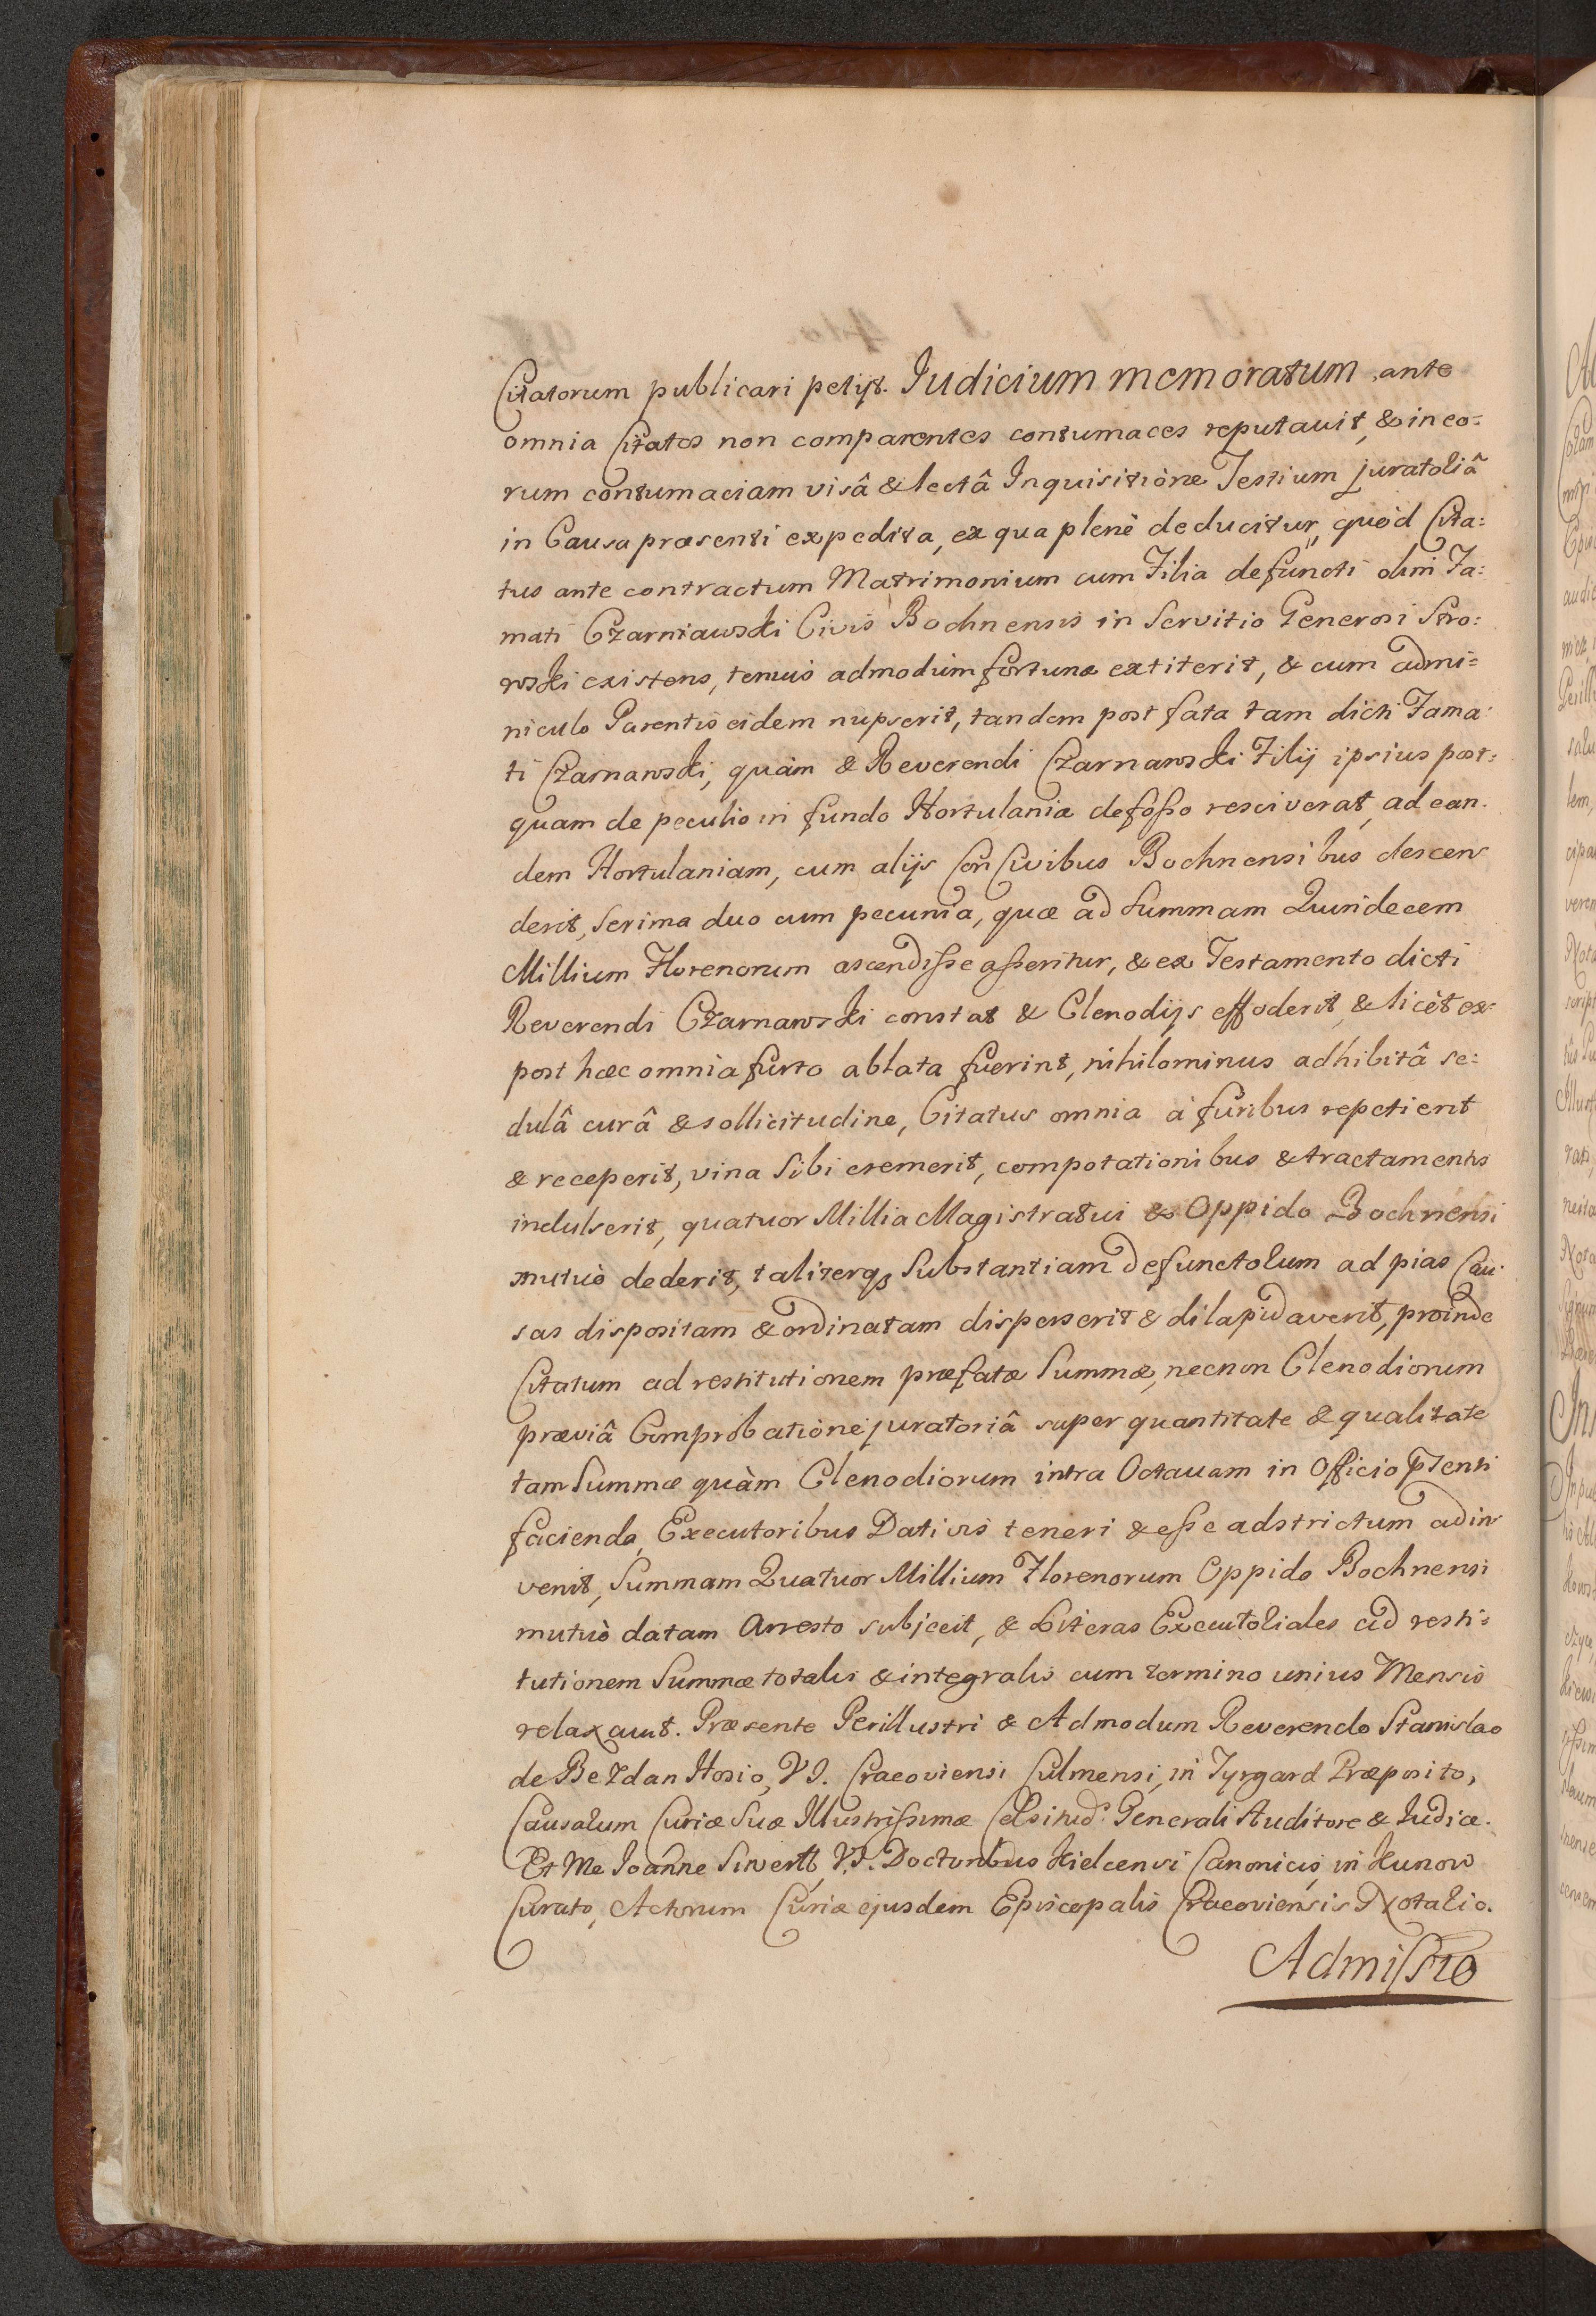 Citatorum publicari petijt. Iudicium memoratum ante
omnia Citatos non comparentes contumaces reputauit, & in eo=
rum contumaciam visâ & lectâ Inquisitione Testium juratoliâ
in Causa præsenti expedita, ex qua plenè deducitur, quòd Cita=
tus ante contractum Matrimonium cum Filia defuncti olim Fa=
mati Czarniawski Civis Bochnensis in Servitio Generosi Stro=
wski existens, tenuis admodùm fortunæ extiterit, & cum admi=
niculo Parentis eidem nupserit, tandem post fata tam dicti Fama=
ti Czarnawski, quàm & Reverendi Czarnawski Filij ipsius post=
quam de peculio in fundo Hortulaniæ defosso resciverat, ad ean=
dem Hortulaniam, cum alijs Con Civibus Bochnensibus descen
derit, Scrinia duo cum pecunia, quæ ad Summam Quindecem
Millium Florenorum ascendisse asseritur, & ex Testamento dicti
Reverendi Czarnawski constat & Clenodijs effoderit, & licèt ex
post hæc omnia furto ablata fuerint, nihilominus adhibitâ se=
dulâ curâ & sollicitudine, Citatus omnia à furibus repetierit
& receperit, vina Sibi exemerit, compotationibus & tractamentis
indulserit, quatuor Millia Magistratui & Oppido Bochnensi
mutuò dederit, taliterq3 Substantiam defunctolum ad pias Cau=
sas dispositam & ordinatam disperserit & dilapidaverit, proinde
Citatum ad restitutionem præfatæ Summæ, necnon Clenodiorum
præviâ Comprobatione juratoriâ super quantitate & qualitate
tam Summæ quàm Clenodiorum intra Octavam in Officio Pȓnti
facienda, Executoribus Dativis teneri & esse adstrictum adin
venit, Summam Quatuor Millium Florenorum Oppido Bochnensi
mutuò datam Arresto subjecit, & Literas Executoliales ad resti=
tutionem Summæ totalis & integralis cum termino unius Mensis
relaxauit. Præsente Perillustri & Admodum Reverendo Stanislao
de Bezdan Hosio, V.I. Cracoviensi Culmensi, in Tyrgard Præposito,
Causalum Curiæ Suæ Illustrissimæ Celsitud. Generali Auditore & Iudice.
Et Me Ioanne Siwertt, V.I. Doctoribus Kielcensi Canonicis, in Kunow
Curato, Actorum Curiæ ejusdem Episcopalis Cracoviensis Notalio.
Admissio